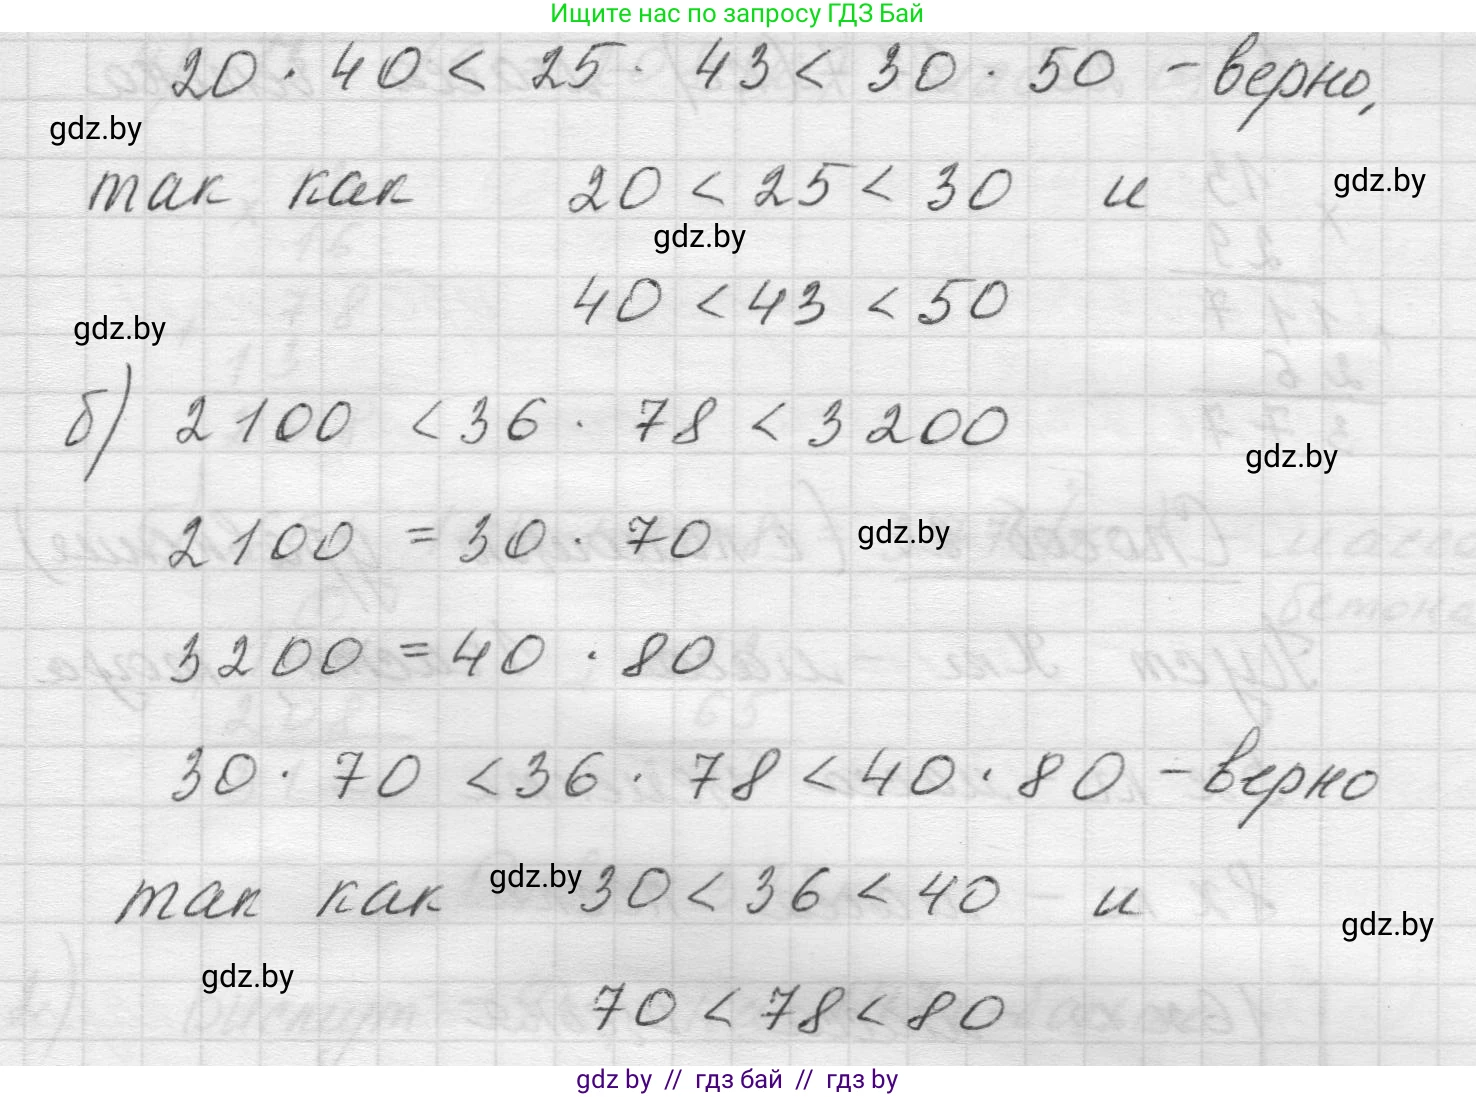 Ищите нас по запросу ГДЗ Бай
20 · 40 < 25 · 43 < 30 · 50 - верно,
gdz.by
так как 20 < 25 < 30 и
gdz.by
gdz.by
40 < 43 < 50
gdz.by
б) 2100 < 36 · 78 < 3200
gdz.by
2100 = 30 · 70
gdz.by
3200 = 40 · 80
30 · 70 < 36 · 78 < 40 · 80 - верно
так как 30 < 36 < 40 - и
gdz.by
gdz.by
gdz.by
70 < 78 < 80
gdz by // гдз бай // гдз by